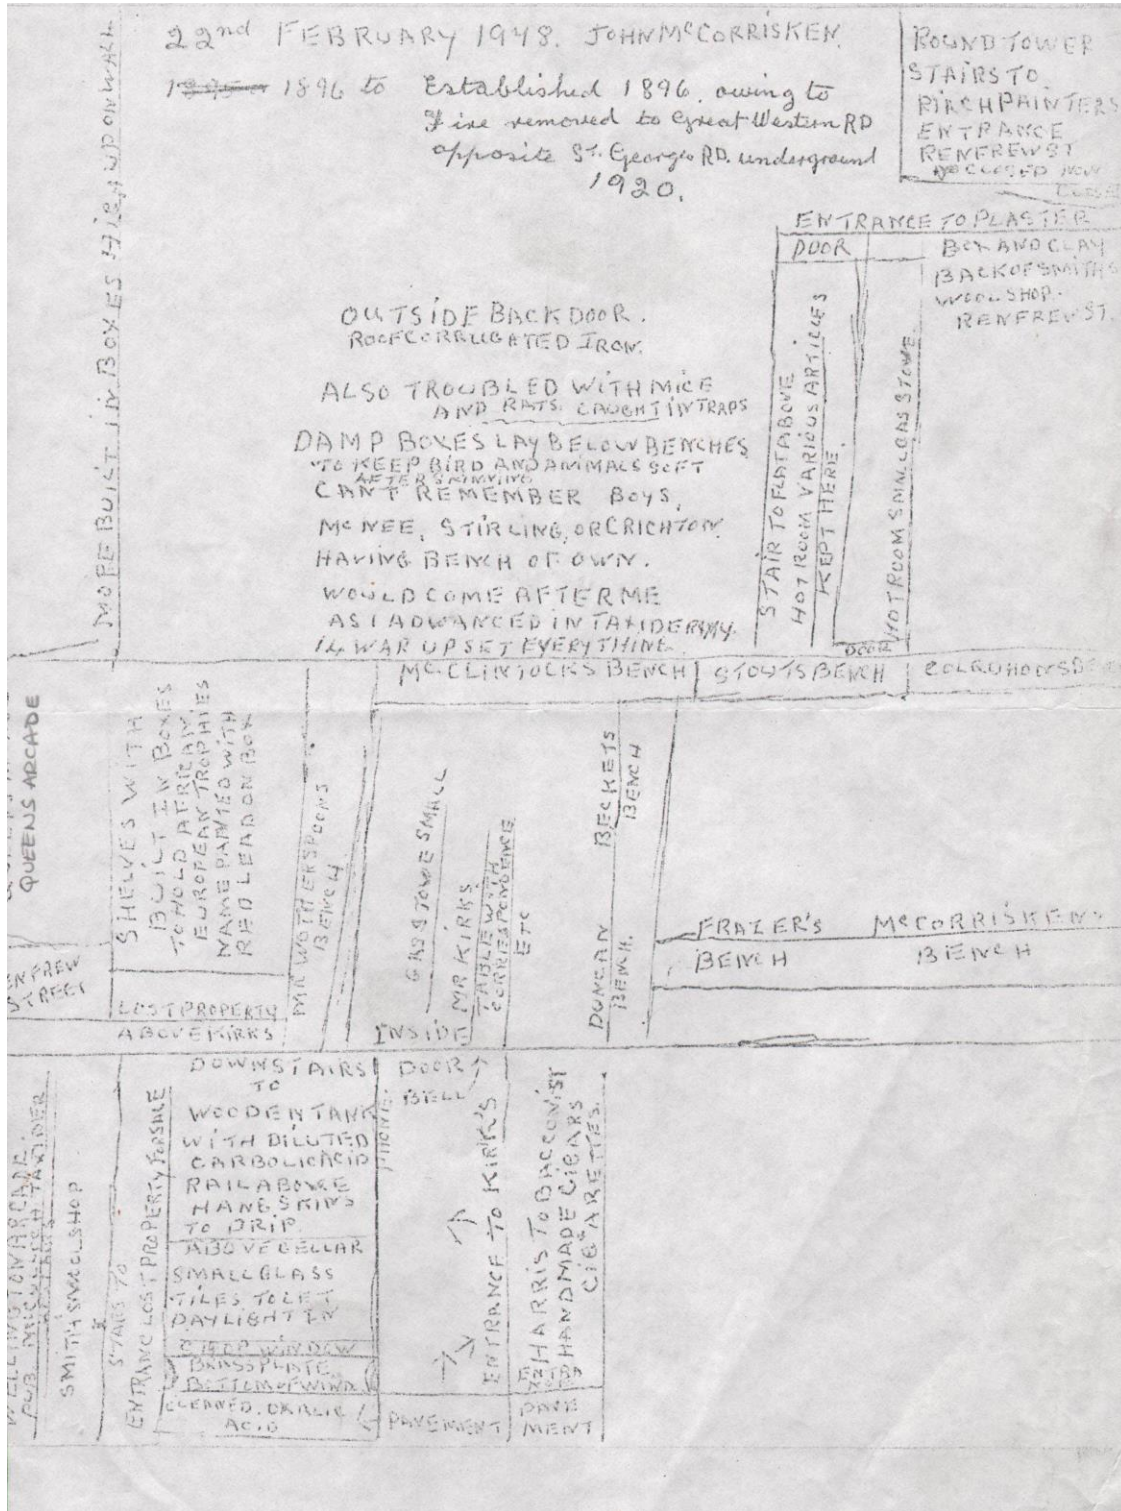 22nd FEBRUARY 1948. JOHN McCORRISKEN.
1896 to Established 1896. owing to
Fire removed to Great Western RD
opposite St. Georges RD. underground
1920.
ROUND TOWER
STAIRS TO
BIRCH PAINTERS
ENTRANCE
RENFREW ST
CLOSED NOW
MORE BUILT IN BOXES HIGH UP ON WALL
ENTRANCE TO PLASTER
DOOR
BOX AND CLAY
BACK OF SMITHS
WOOL SHOP.
RENFREW ST.
OUTSIDE BACK DOOR.
ROOF CORRUGATED IRON.
ALSO TROUBLED WITH MICE
AND RATS. CAUGHT IN TRAPS
DAMP BOXES LAY BELOW BENCHES
TO KEEP BIRD AND ANIMALS SOFT
AFTER SKINNING
CAN'T REMEMBER BOYS,
McNEE, STIRLING, OR CRICHTON.
HAVING BENCH OF OWN.
WOULD COME AFTER ME
AS I ADVANCED IN TAXIDERMY.
14 WAR UPSET EVERYTHING.
STAIR TO FLAT ABOVE
HOT ROOM VARIOUS ARTICLES
KEPT HERE.
HOT ROOM SMALL GAS STOVE.
DOOR
McCLINTOCKS BENCH
STOUTS BENCH
COLQUHOUNS
QUEENS ARCADE
RENFREW
STREET
SHELVES WITH
BUILT IN BOXES
TO HOLD AFRICAN
EUROPEAN TROPHIES
NAME PAINTED WITH
RED LEAD ON BOX
LOST PROPERTY
ABOVE KIRKS
MR WOTHERSPOONS
BENCH
GAS STOVE SMALL
MR KIRKS
TABLE WITH
CORRESPONDENCE
ETC
INSIDE
BECKETS
BENCH
DUNCAN
BENCH.
FRAZER'S
BENCH
McCORRISKENS
BENCH
WELLINGTON ARCADE
PUB McCULLOCH TAXIDER
SMITHS WOOL SHOP
STAIRS TO
ENTRANC LOST PROPERTY FORSALE
DOWNSTAIRS
TO
WOODEN TANK
WITH DILUTED
CARBOLIC ACID
RAIL ABOVE
HANG SKINS
TO DRIP.
ABOVE CELLAR
SMALL GLASS
TILES TO LET
DAYLIGHT IN
SHOP WINDOW
BRASS PLATE
BOTTOM OF WIND
CLEANED. OXALIC
ACID
PHONE.
DOOR
BELL
ENTRANCE TO KIRK'S
PAVEMENT
HARRIS TOBACCONIST
HANDMADE CIGARS
CIGARETTES.
PAVE
MENT